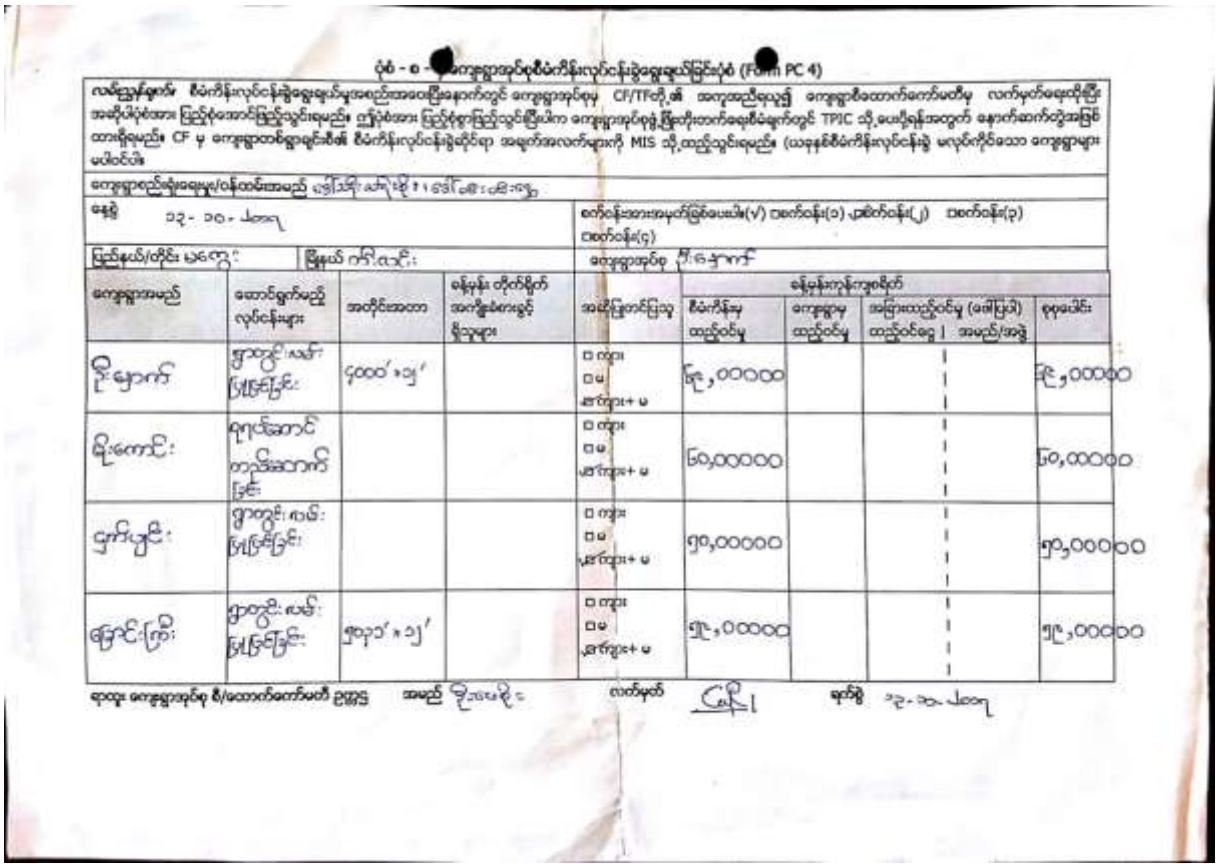 ပုံစံ - စ - ကျေးရွာအုပ်စုစီမံကိန်းလုပ်ငန်းခွဲရွေးချယ်ခြင်းပုံစံ (Form PC 4)
လမ်းညွှန်ချက်။ စီမံကိန်းလုပ်ငန်းခွဲရွေးချယ်မှုအစည်းအဝေးပြီးနောက်တွင် ကျေးရွာအုပ်စုမှ CF/TFတို့၏ အကူအညီရယူ၍ ကျေးရွာစီထောက်ကော်မတီမှ လက်မှတ်ရေးထိုးပြီး
အဆိုပါပုံစံအား ပြည့်စုံအောင်ဖြည့်သွင်းရမည်။ ဤပုံစံအား ပြည့်စုံစွာဖြည့်သွင်းပြီးပါက ကျေးရွာအုပ်စုဖွံ့ဖြိုးတိုးတက်ရေးစီမံချက်တွင် TPIC သို့ပေးပို့ရန်အတွက် နောက်ဆက်တွဲအဖြစ်
ထားရှိရမည်။ CF မှ ကျေးရွာတစ်ရွာချင်းစီ၏ စီမံကိန်းလုပ်ငန်းခွဲဆိုင်ရာ အချက်အလက်များကို MIS သို့ထည့်သွင်းရမည်။ (ယခုနှစ်စီမံကိန်းလုပ်ငန်းခွဲ မလုပ်ကိုင်သော ကျေးရွာများ
မပါဝင်ပါ။
ကျေးရွာစည်းရုံးရေးမှူး/ဝန်ထမ်းအမည်
နေ့စွဲ ၁၃-၁၀-၂၀၁၇ စက်ဝန်းအားအမှတ်ခြစ်ပေးပါ။(√) □စက်ဝန်း(၁) □စက်ဝန်း(၂) □စက်ဝန်း(၃)
□စက်ဝန်း(၄)
ပြည်နယ်/တိုင်း မကွေး မြို့နယ် ကျေးရွာအုပ်စု ဦးနှောက်
ကျေးရွာအမည် ဆောင်ရွက်မည့် လုပ်ငန်းများ အတိုင်းအတာ ခန့်မှန်း တိုက်ရိုက် အကျိုးခံစားခွင့် ရှိသူများ အဆိုပြုတင်ပြသူ ခန့်မှန်းကုန်ကျစရိတ်
စီမံကိန်းမှ ထည့်ဝင်မှု ကျေးရွာမှ ထည့်ဝင်မှု အခြားထည့်ဝင်မှု (ဖော်ပြပါ) ထည့်ဝင်ငွေ | အမည်/အဖွဲ့ စုစုပေါင်း
ဦးနှောက် ရွာတွင်းလမ်း ပြုပြင်ခြင်း ၄၀၀၀' × ၁၂' □ ကျား □ မ □ ကျား+ မ ၆၉,၀၀၀၀၀ ၆၉,၀၀၀၀၀
ရိုးကောင်း ရရပ်ဆောင် တည်ဆောက် ခြင်း □ ကျား □ မ □ ကျား+ မ ၆၀,၀၀၀၀၀ ၆၀,၀၀၀၀၀
ငှက်ပျဉ်း ရွာတွင်းလမ်း ပြုပြင်ခြင်း □ ကျား □ မ □ ကျား+ မ ၅၀,၀၀၀၀၀ ၅၀,၀၀၀၀၀
ခြောင်းကြီး ရွာတွင်းလမ်း ပြုပြင်ခြင်း □ ကျား □ မ □ ကျား+ မ ၅၉,၀၀၀၀၀ ၅၉,၀၀၀၀၀
ရာထူး ကျေးရွာအုပ်စု စီ/ထောက်ကော်မတီ ဥက္ကဋ္ဌ အမည် လက်မှတ် ရက်စွဲ ၁၃-၁၀-၂၀၁၇